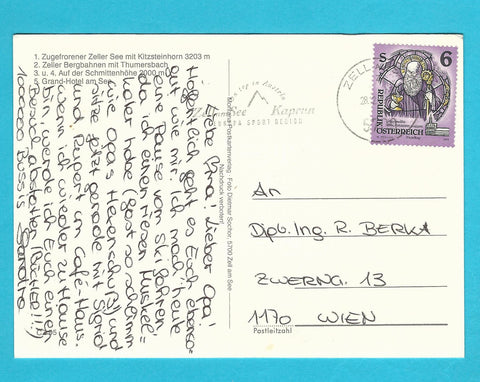 1. Zugefrorener Zeller See mit Kitzsteinhorn 3203 m
2. Zeller Bergbahnen mit Thumersbach
3. u. 4. Auf der Schmittenhöhe 2000 m
5. Grand-Hotel am See
Liebe Oma! Lieber Opa!
Hoffentlich geht es Euch ebenso
gut wie mir. Ich mach' heute
eine Pause vom Ski fahren,
da ich einen riesen Muskel=
kater habe (fast so schlimm
wie Opas Hexenschuß) und
sitze jetzt gerade mit Sigrid
und Rupert im Café-Haus.
Wenn ich wieder zu Hause
bin, werde ich Euch einen
Besuch abstatten (BÜCHER!!!)
1000000 Bussis Sandra
Foto Dietmar Sochor, 5700 Zell am See
Nachdruck verboten!
Zell am See Kaprun
EUROPA SPORT REGION
ZELL
S 6
REPUBLIK
ÖSTERREICH
An
Dipl. Ing. R. BERKA
ZWERNG. 13
1170 WIEN
Postleitzahl